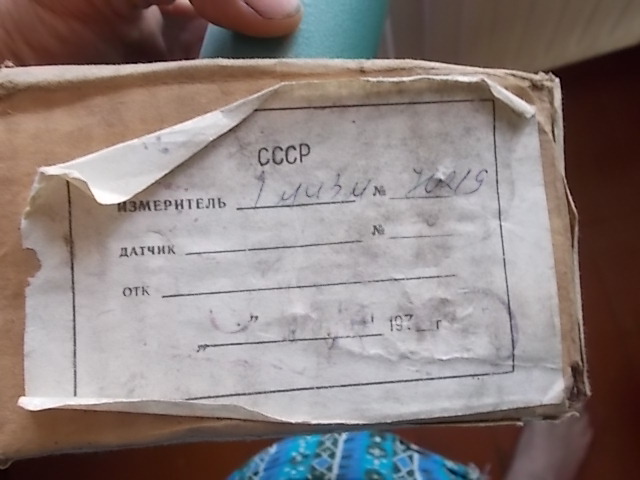 СССР
ИЗМЕРИТЕЛЬ №
ДАТЧИК №
ОТК
„ " 197 г